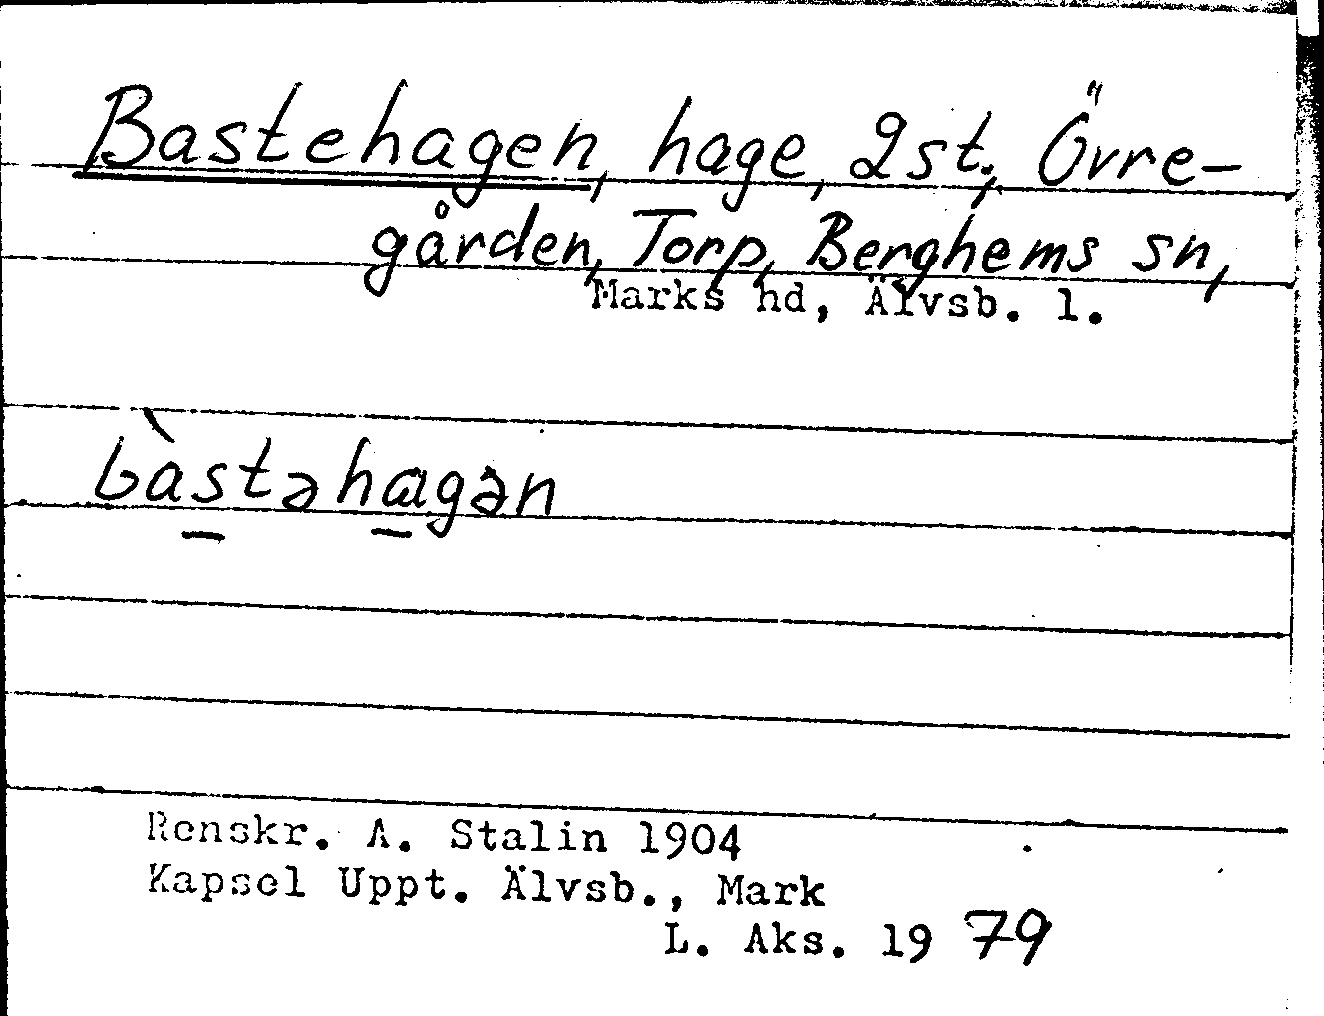 Bastehagen, hage, 2st.; Övre-
gården, Torp, Berghems sn,
Marks hd, Älvsb. l.
bàstəhagən
Renskr. A. Stalin 1904
Kapsel Uppt. Älvsb., Mark
L. Aks. 19 79